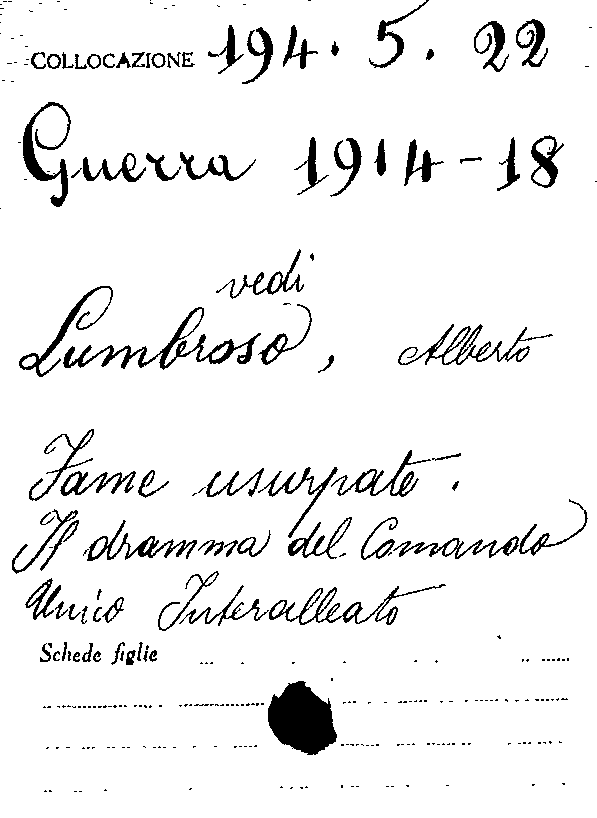 COLLOCAZIONE 194. 5. 22
Guerra 1914-18
vedi
Lumbroso, Alberto
Fame usurpate.
Il dramma del Comando
Unico Interalleato
Schede figlie